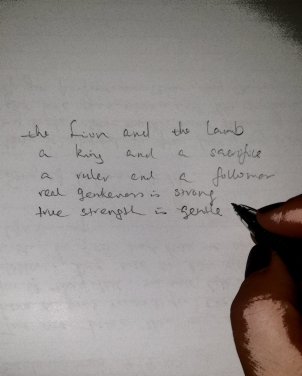 the Lion and the Lamb
a king and a sacrifice
a ruler and a follower
real gentleness is strong
true strength is gentle